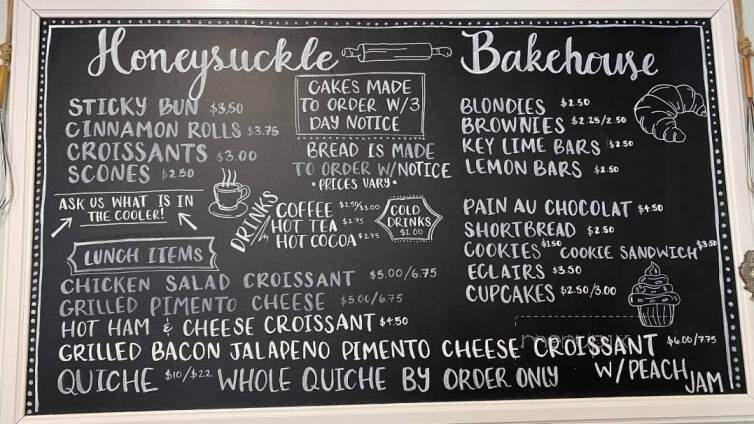 Honeysuckle Bakehouse
CAKES MADE
TO ORDER W/3
DAY NOTICE
BREAD IS MADE
TO ORDER W/NOTICE
• PRICES VARY •
STICKY BUN $3.50
CINNAMON ROLLS $3.75
CROISSANTS $3.00
SCONES $2.50
BLONDIES $2.50
BROWNIES $2.25/2.50
KEY LIME BARS $2.50
LEMON BARS $2.50
ASK US WHAT IS IN
THE COOLER!
DRINKS
COFFEE $2.50/$3.00
HOT TEA $2.75
HOT COCOA $2.75
COLD
DRINKS
$1.00
PAIN AU CHOCOLAT $4.50
SHORTBREAD $2.50
COOKIES $1.50 COOKIE SANDWICH $3.50
ECLAIRS $3.50
CUPCAKES $2.50/3.00
LUNCH ITEMS
CHICKEN SALAD CROISSANT $5.00/6.75
GRILLED PIMENTO CHEESE $5.00/6.75
HOT HAM & CHEESE CROISSANT $4.50
GRILLED BACON JALAPENO PIMENTO CHEESE CROISSANT $6.00/7.75
W/PEACH JAM
QUICHE $10/$22 WHOLE QUICHE BY ORDER ONLY